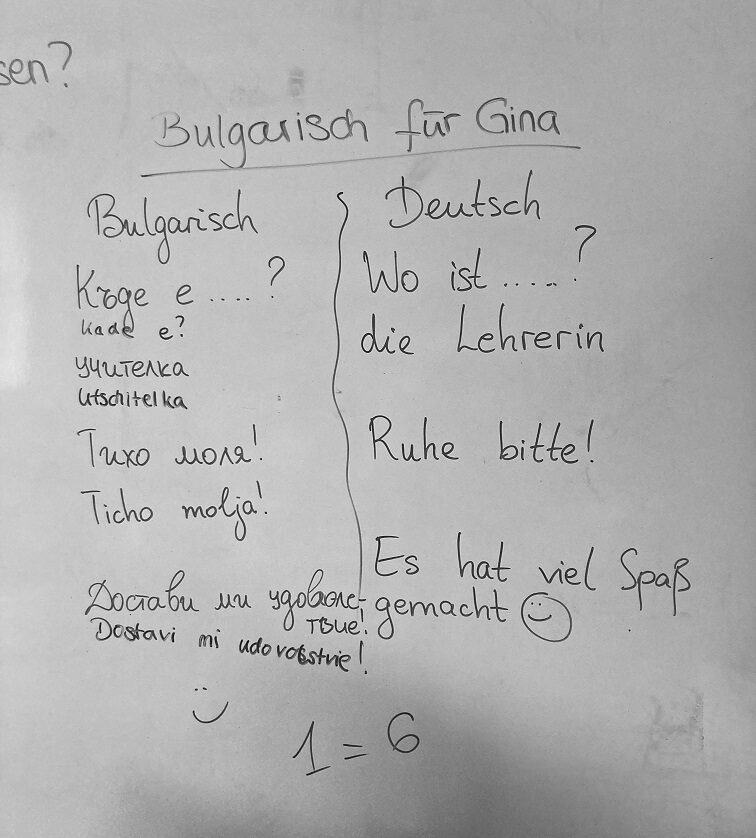 sen?
Bulgarisch für Gina
Bulgarisch
Къде е ....?
kade e?
учителка
Utschitelka
Тихо моля!
Ticho molja!
Достави ми удоволс-
твие!
Dostavi mi udovolstvie!
Deutsch
Wo ist .....?
die Lehrerin
Ruhe bitte!
Es hat viel Spaß
gemacht
1 = 6